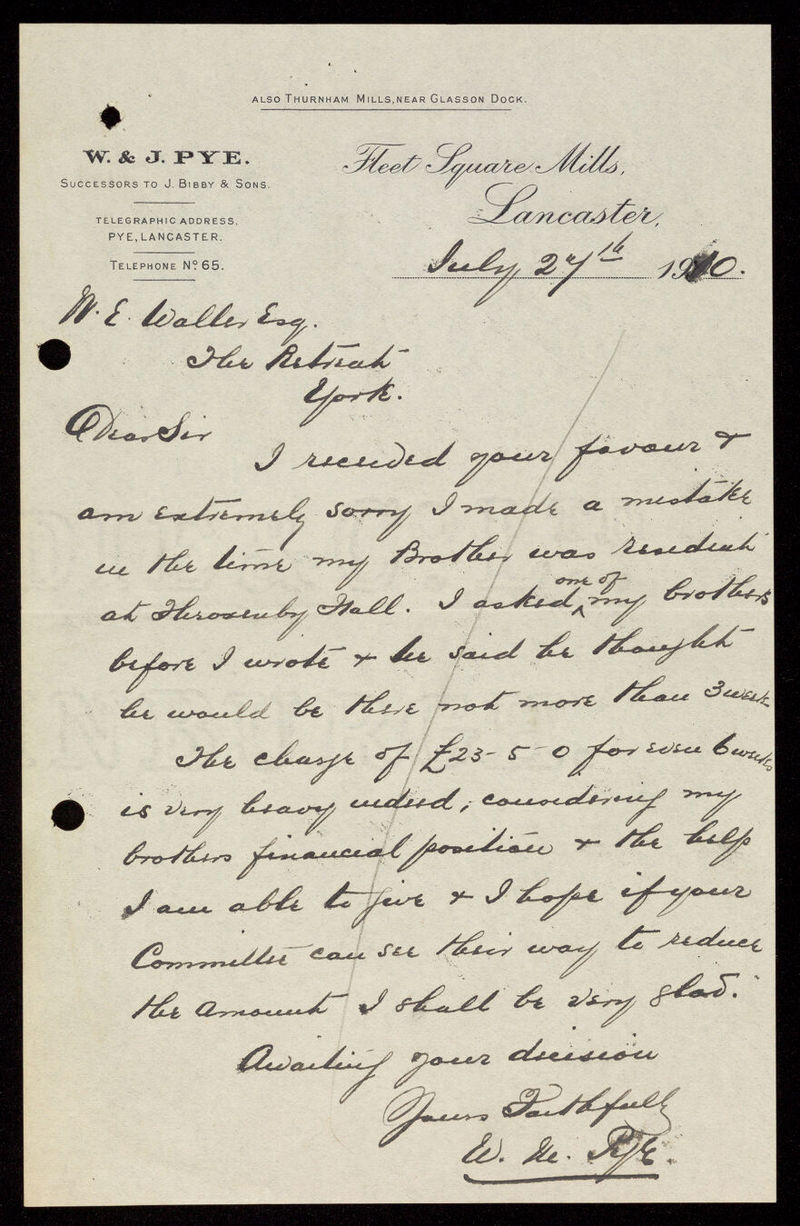 ALSO THURNHAM MILLS, NEAR GLASSON DOCK.
W. & J. PYE.
SUCCESSORS TO J. BIBBY & SONS.
TELEGRAPHIC ADDRESS,
PYE, LANCASTER.
TELEPHONE Nº 65.
Fleet Square Mills,
Lancaster,
July 27th 1910.
W. E. Waller Esq.
The Retreat
York.
Dear Sir
I received your favour &
am extremely sorry I made a mistake
in the time my Brother was resident
at Throxenby Hall. I asked one of my brothers
before I wrote & he said he thought
he would be there not more than 3 weeks
The charge of £23-5-0 for even 6 weeks
is very heavy indeed, considering my
brothers financial position & the help
I am able to give & I hope if your
Committee can see their way to reduce
the amount I shall be very glad.
Awaiting your decision
Yours Faithfully
W. H. Pye.